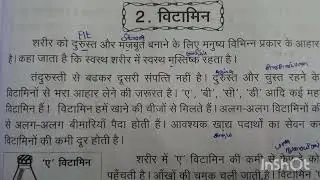 2. विटामिन
FIt
Strong
शरीर को दुरुस्त और मजबूत बनाने के लिए मनुष्य विभिन्न प्रकार के आहार
है। कहा जाता है कि स्वस्थ शरीर में स्वस्थ मस्तिष्क रहता है।
तंदुरुस्ती से बढकर दूसरी संपत्ति नहीं है। दुरुस्त और चुस्त रहने के
विटामिनों से भरा आहार लेने की जरूरत है। 'ए', 'बी', 'सी', 'डी' आदि कई महत्व
विटामिन हैं। विटामिन हमें खाने की चीजों से मिलते हैं। अलग-अलग विटामिनों की
से अलग-अलग बीमारियाँ पैदा होती हैं। आवश्यक खाद्य पदार्थों का सेवन कर
विटामिनों की कमी दूर होती है।
'ए' विटामिन
शरीर में 'ए' विटामिन की कमी
पहुँचती है। आँखों की चमक चली जाती है।
InShOt